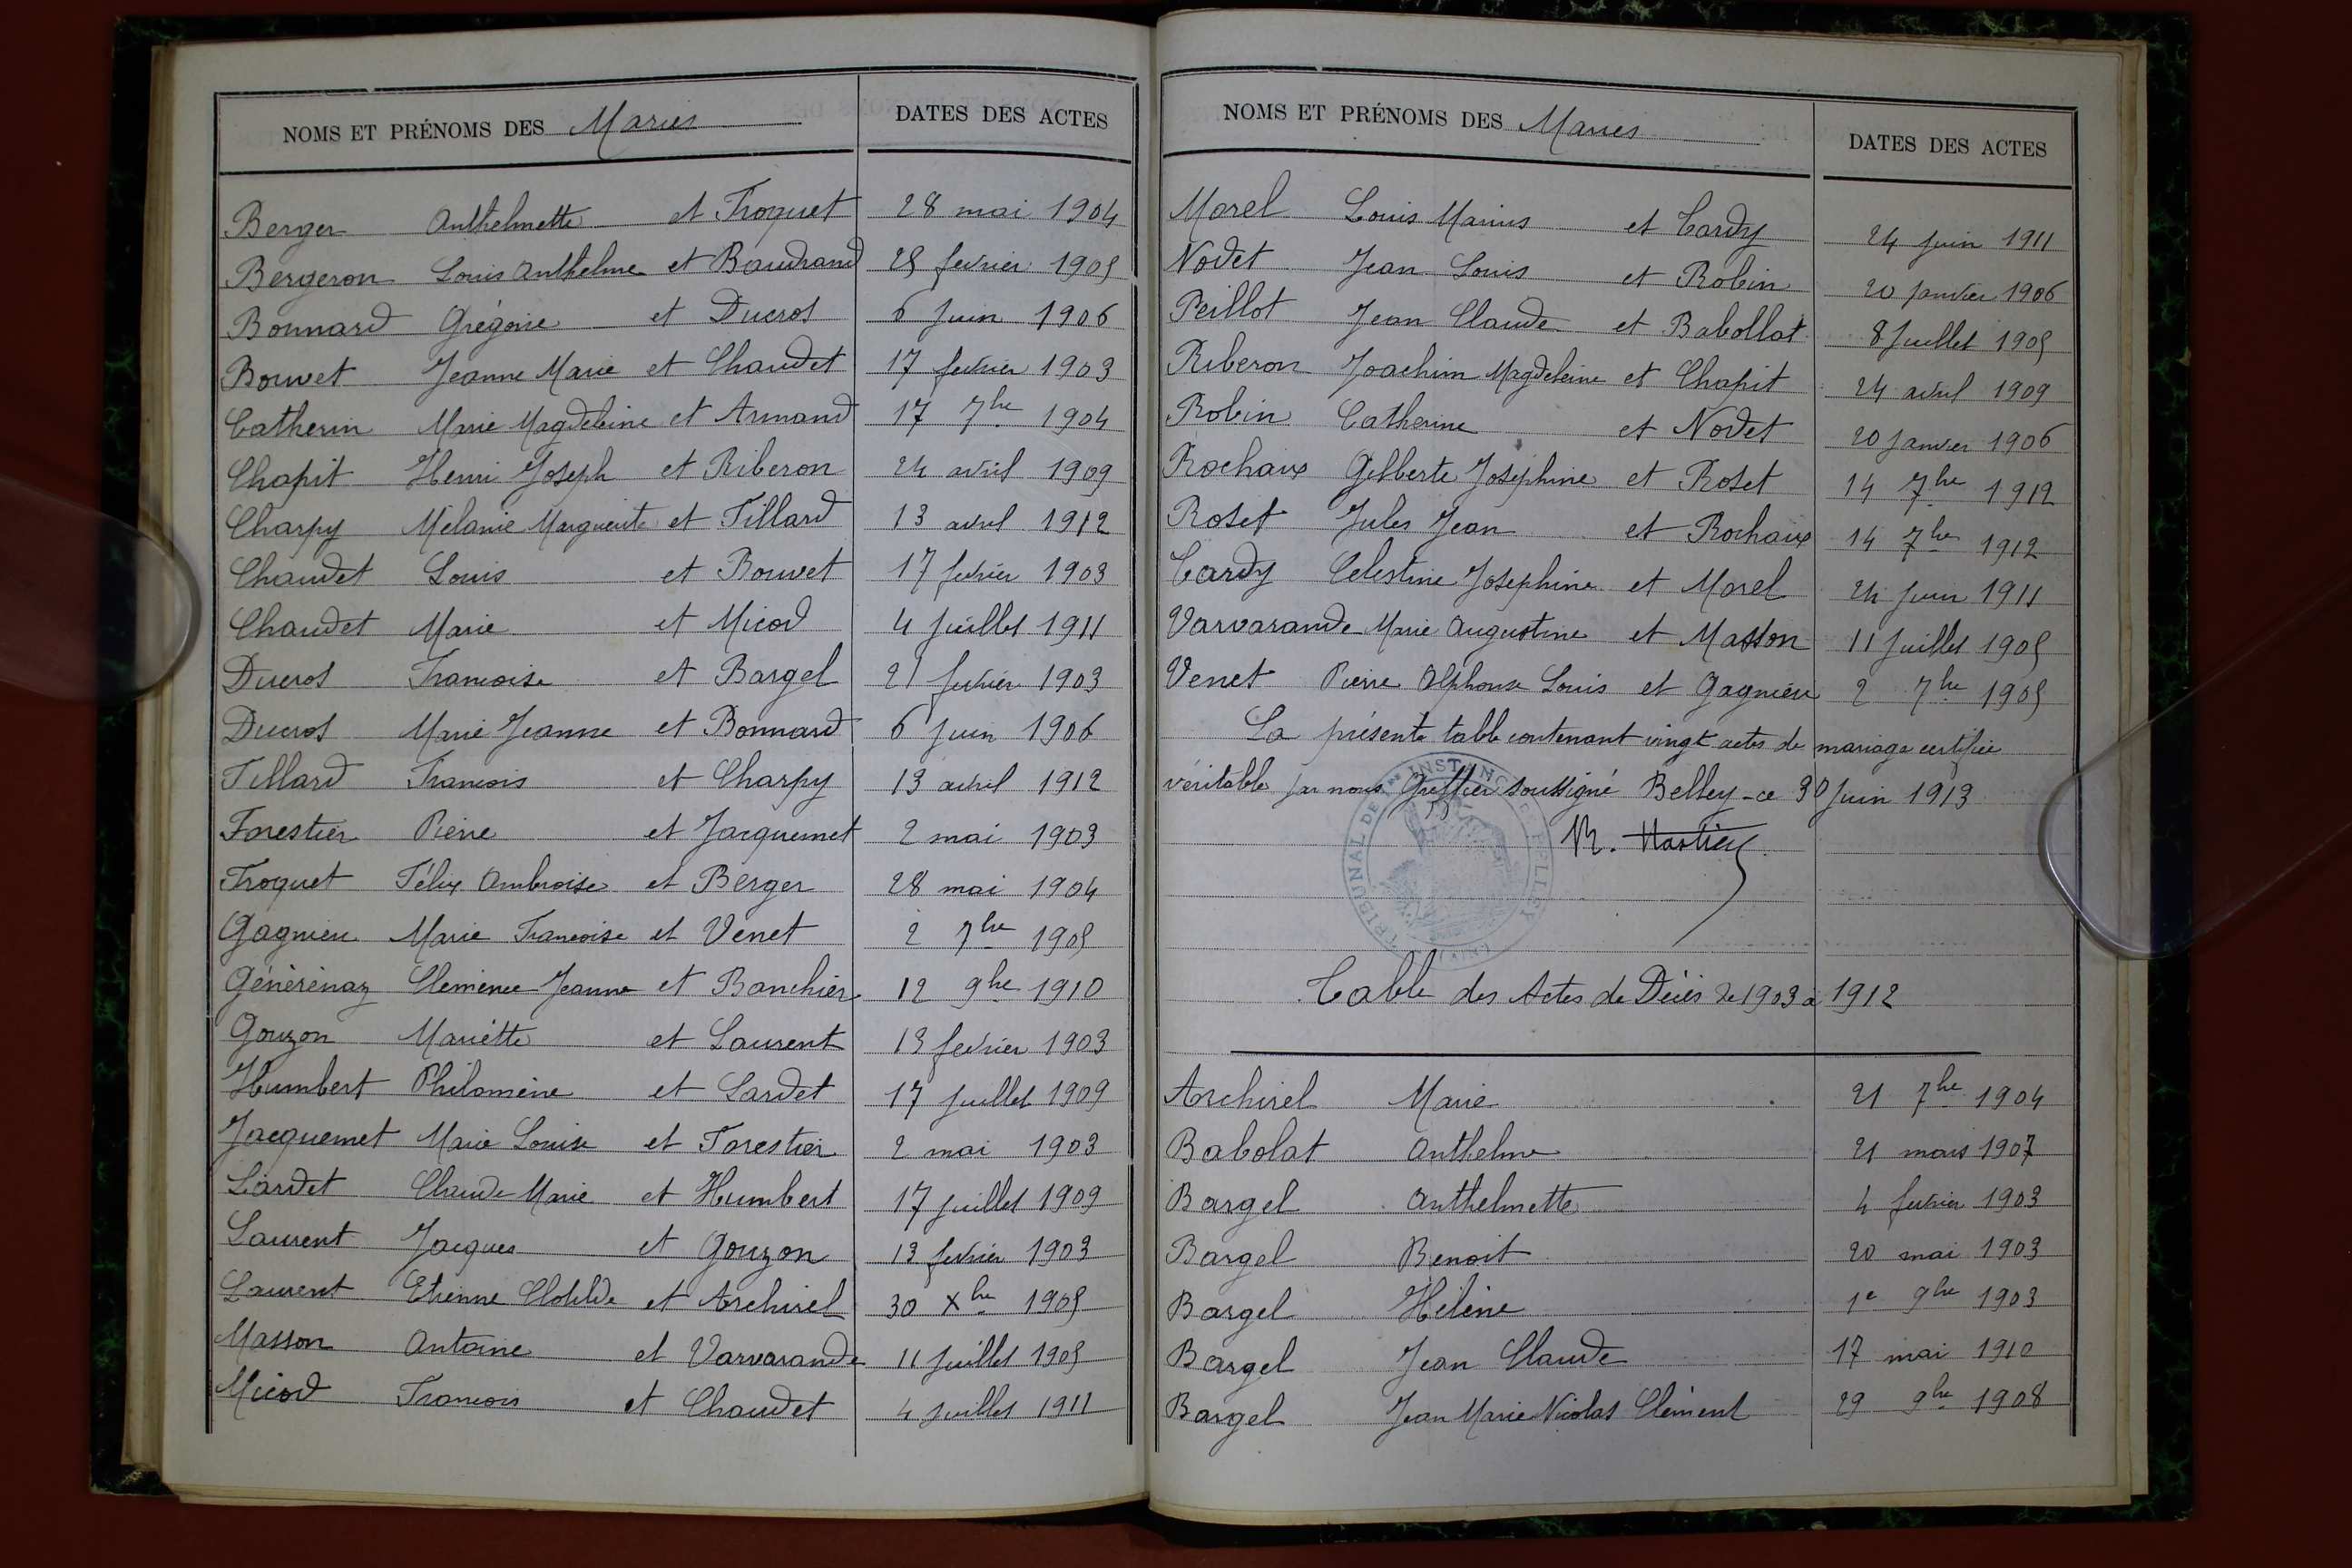 NOMS ET PRÉNOMS DES Mariés DATES DES ACTES
Berger Anthelmette et Froquet 28 mai 1904
Bergeron Louis Anthelme et Baudrand 25 fevrier 1905
Bonnard Grégoire et Ducros 6 Juin 1906
Bouvet Jeanne Marie et Chaudet 17 fevrier 1903
Catherin Marie Magdeleine et Armand 17 7bre 1904
Chapit Henri Joseph et Riberon 24 avril 1909
Charpy Mélanie Marguerite et Fillard 13 avril 1912
Chaudet Louis et Bouvet 17 fevrier 1903
Chaudet Marie et Micod 4 Juillet 1911
Ducros Francoise et Bargel 21 fevrier 1903
Ducros Marie Jeanne et Bonnard 6 Juin 1906
Fillard Francois et Charpy 13 avril 1912
Forestier Pierre et Jacquemet 2 mai 1903
Froquet Félix Ambroise et Berger 28 mai 1904
Gagnieu Marie Francoise et Venet 2 7bre 1905
Génèrénaz Clémence Jeanne et Banchier 12 9bre 1910
Gouzon Mariette et Laurent 13 fevrier 1903
Humbert Philomène et Lardet 17 Juillet 1909
Jacquemet Marie Louise et Forestier 2 mai 1903
Lardet Claude Marie et Humbert 17 juillet 1909
Laurent Jacques et Gouzon 13 fevrier 1903
Laurent Etienne Clotilde et Archirel 30 Xbre 1905
Masson Antoine et Varvarande 11 Juillet 1905
Micod Francois et Chaudet 4 Juillet 1911
NOMS ET PRÉNOMS DES Mariés DATES DES ACTES
Morel Louis Marius et Tardy 24 Juin 1911
Nodet Jean Louis et Robin 20 Janvier 1906
Peillot Jean Claude et Babollat 8 Juillet 1905
Riberon Joachim Magdeleine et Chapit 24 avril 1909
Robin Catherine et Nodet 20 Janvier 1906
Rochaix Gilberte Joséphine et Roset 14 7bre 1912
Roset Jules Jean et Rochaix 14 7bre 1912
Tardy Celestine Josephine et Morel 24 Juin 1911
Varvarande Marie Augustine et Masson 11 Juillet 1905
Venet Pierre Alphonse Louis et Gagnieu 2 7bre 1905
La présente table contenant vingt actes de mariage certifiée
véritable par nous Greffier soussigné Belley - ce 30 Juin 1913
TRIBUNAL DE 1re INSTANCE BELLEY (AIN)
Table des Actes de Décès de 1903 à 1912
Archirel Marie 21 7bre 1904
Babolat Anthelme 21 mars 1907
Bargel Anthelmette 4 fevrier 1903
Bargel Benoit 20 mai 1903
Bargel Hélène 1e 9bre 1903
Bargel Jean Claude 17 mai 1910
Bargel Jean Marie Nicolas Clément 29 9bre 1908